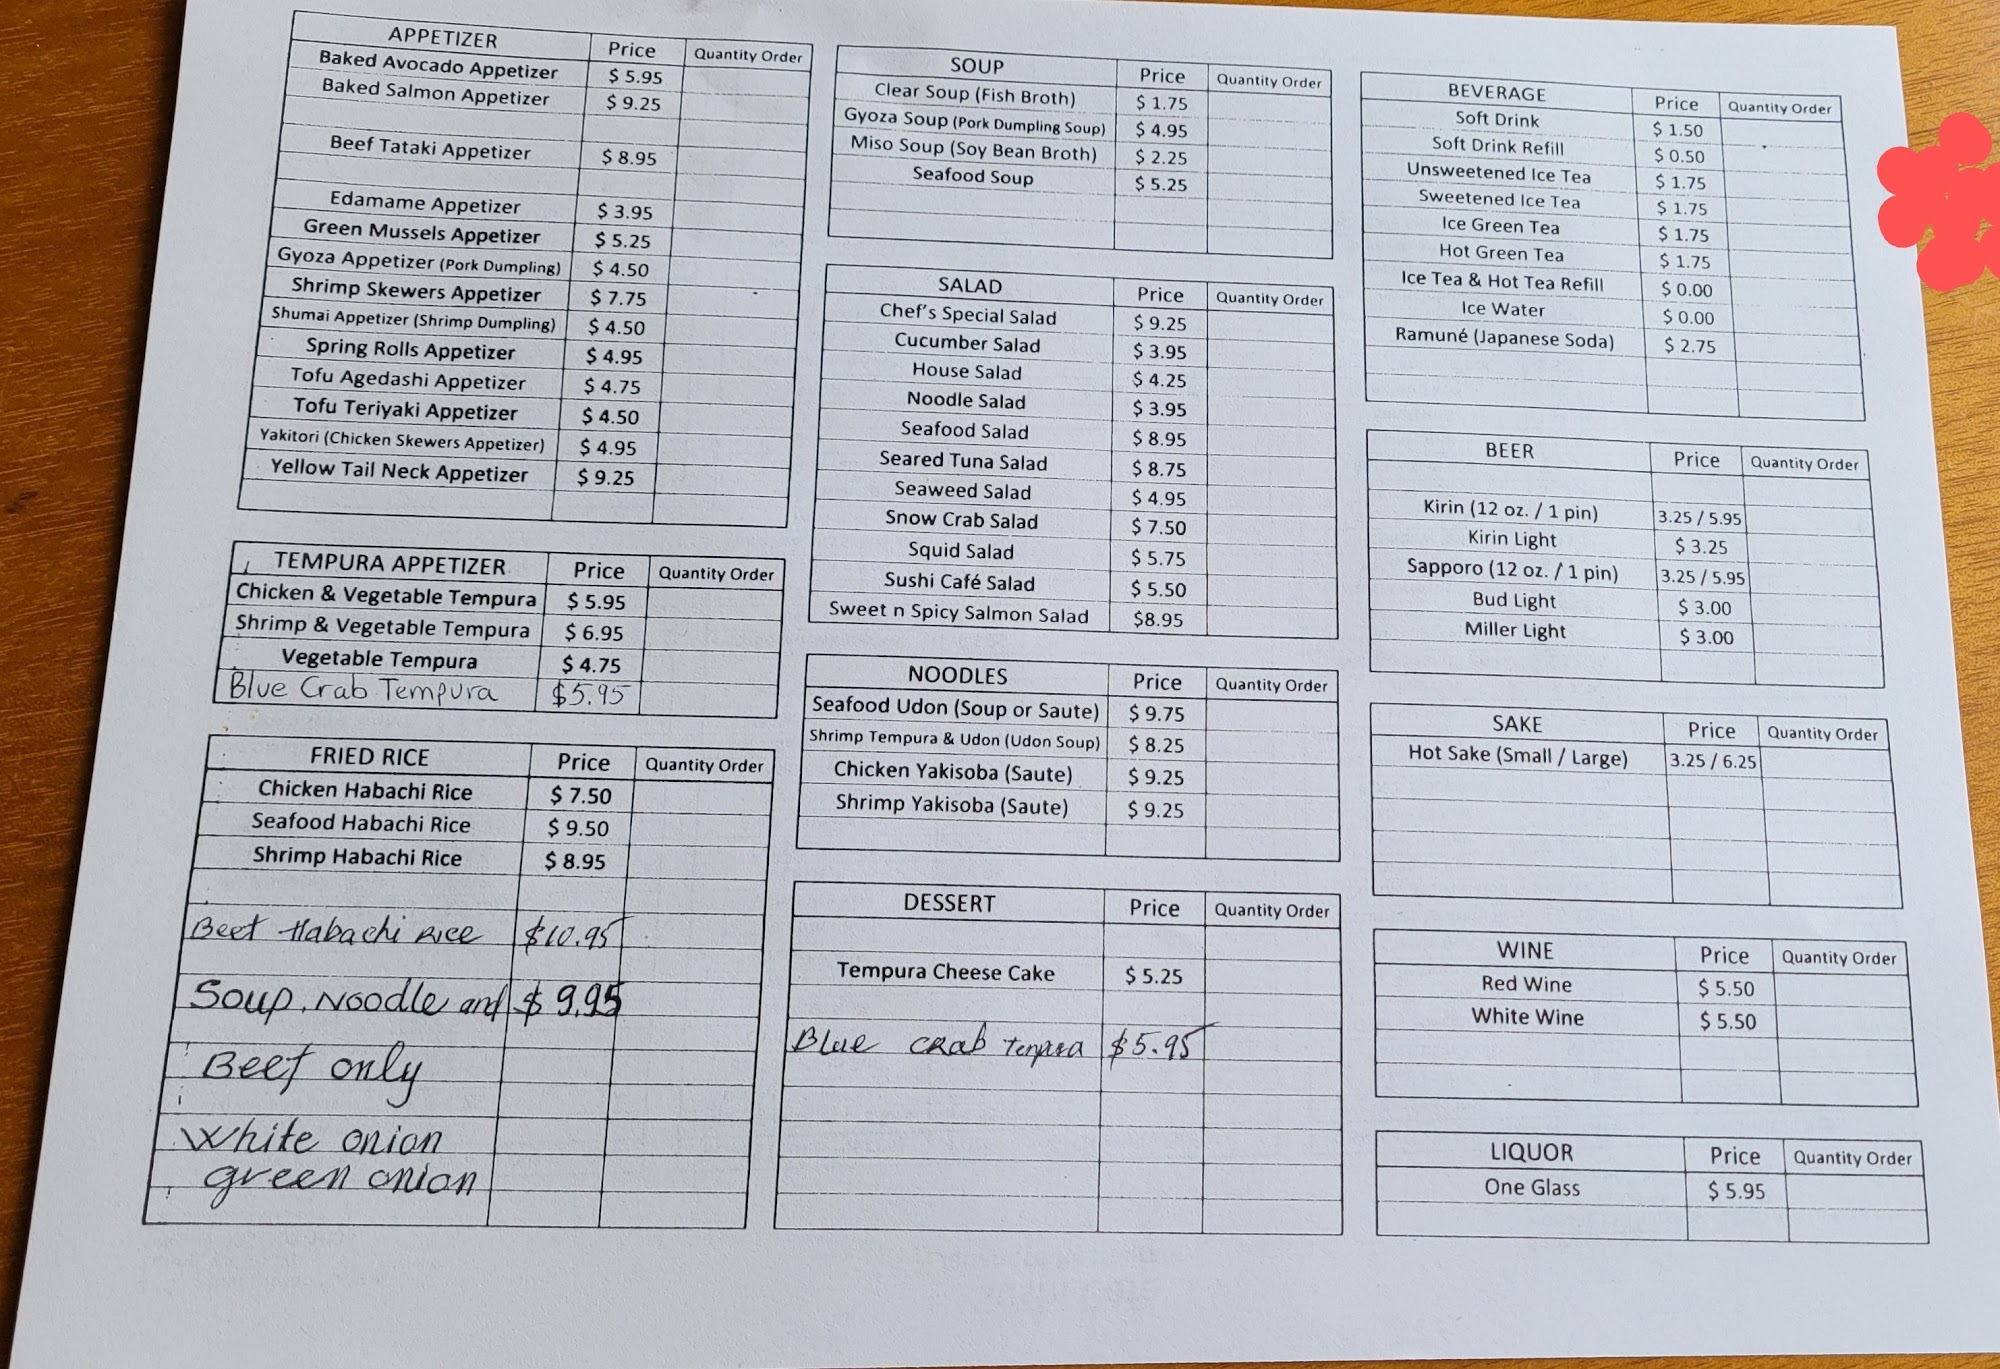 APPETIZER Price Quantity Order
Baked Avocado Appetizer $ 5.95
Baked Salmon Appetizer $ 9.25
Beef Tataki Appetizer $ 8.95
Edamame Appetizer $ 3.95
Green Mussels Appetizer $ 5.25
Gyoza Appetizer (Pork Dumpling) $ 4.50
Shrimp Skewers Appetizer $ 7.75
Shumai Appetizer (Shrimp Dumpling) $ 4.50
Spring Rolls Appetizer $ 4.95
Tofu Agedashi Appetizer $ 4.75
Tofu Teriyaki Appetizer $ 4.50
Yakitori (Chicken Skewers Appetizer) $ 4.95
Yellow Tail Neck Appetizer $ 9.25
TEMPURA APPETIZER Price Quantity Order
Chicken & Vegetable Tempura $ 5.95
Shrimp & Vegetable Tempura $ 6.95
Vegetable Tempura $ 4.75
Blue Crab Tempura $5.95
FRIED RICE Price Quantity Order
Chicken Habachi Rice $ 7.50
Seafood Habachi Rice $ 9.50
Shrimp Habachi Rice $ 8.95
Beef Habachi Rice $10.95
Soup, Noodle and $ 9.95
Beef only
White onion
green onion
SOUP Price Quantity Order
Clear Soup (Fish Broth) $ 1.75
Gyoza Soup (Pork Dumpling Soup) $ 4.95
Miso Soup (Soy Bean Broth) $ 2.25
Seafood Soup $ 5.25
SALAD Price Quantity Order
Chef's Special Salad $ 9.25
Cucumber Salad $ 3.95
House Salad $ 4.25
Noodle Salad $ 3.95
Seafood Salad $ 8.95
Seared Tuna Salad $ 8.75
Seaweed Salad $ 4.95
Snow Crab Salad $ 7.50
Squid Salad $ 5.75
Sushi Café Salad $ 5.50
Sweet n Spicy Salmon Salad $8.95
NOODLES Price Quantity Order
Seafood Udon (Soup or Saute) $ 9.75
Shrimp Tempura & Udon (Udon Soup) $ 8.25
Chicken Yakisoba (Saute) $ 9.25
Shrimp Yakisoba (Saute) $ 9.25
DESSERT Price Quantity Order
Tempura Cheese Cake $ 5.25
Blue crab tempura $5.95
BEVERAGE Price Quantity Order
Soft Drink $ 1.50
Soft Drink Refill $ 0.50
Unsweetened Ice Tea $ 1.75
Sweetened Ice Tea $ 1.75
Ice Green Tea $ 1.75
Hot Green Tea $ 1.75
Ice Tea & Hot Tea Refill $ 0.00
Ice Water $ 0.00
Ramuné (Japanese Soda) $ 2.75
BEER Price Quantity Order
Kirin (12 oz. / 1 pin) 3.25 / 5.95
Kirin Light $ 3.25
Sapporo (12 oz. / 1 pin) 3.25 / 5.95
Bud Light $ 3.00
Miller Light $ 3.00
SAKE Price Quantity Order
Hot Sake (Small / Large) 3.25 / 6.25
WINE Price Quantity Order
Red Wine $ 5.50
White Wine $ 5.50
LIQUOR Price Quantity Order
One Glass $ 5.95